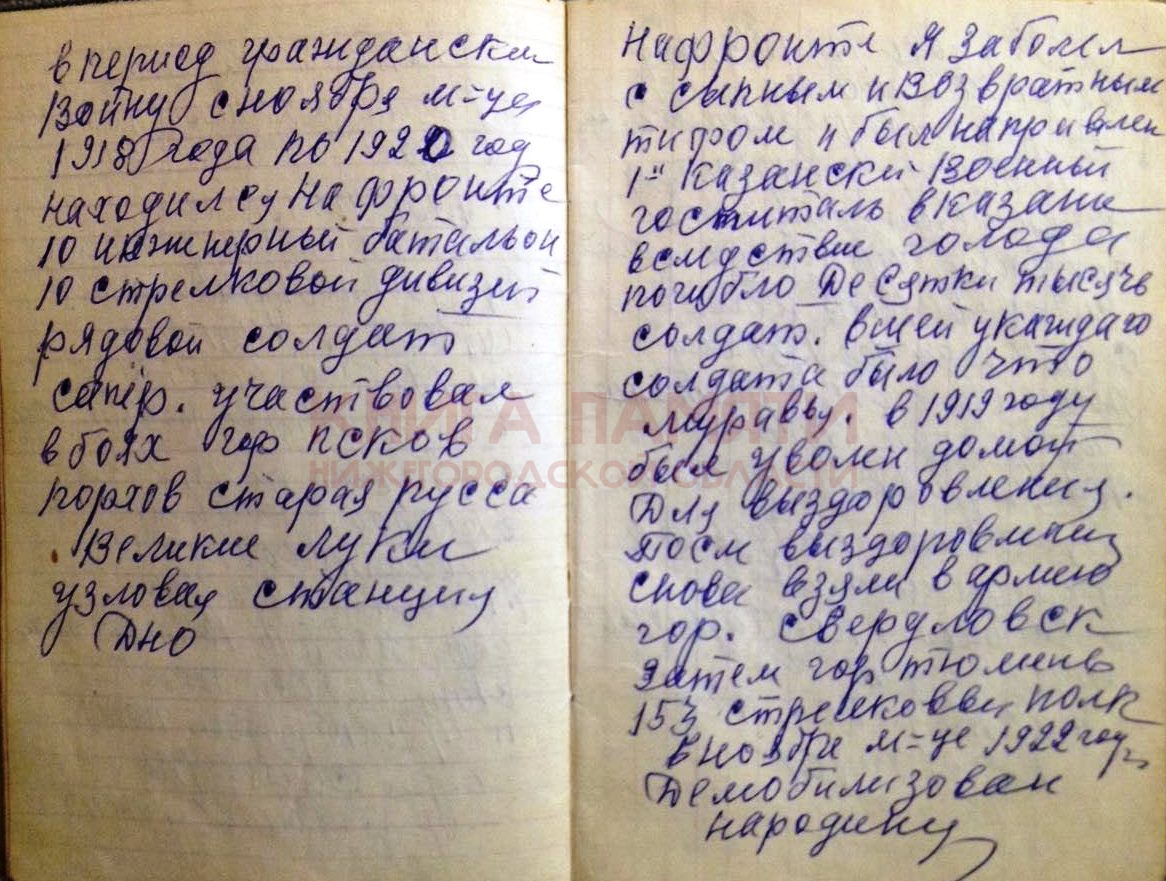 в период граждански
войну с ноября м-ца
1918 года по 1920 год
находилсу на фронте
10 инжнерный батальон
10 стрелковой дивизей
рядовой солдат
сапер. участвовал
в боях гор псков
порхов старая русса
Великие Луки
узловая станция
Дно
На фронте я заболел
с сыпным и возвратным
тифом и был направлен
1й Казанский Военный
госпиталь в казани
вследствие голода
погибло Десятки тысячь
солдат. вшей у каждаго
солдата было что
муравьу. в 1919 году
был уволен домой
Для выздоровления.
после выздоровления
снова взяли в армию
гор. Свердловск
затем гор тюмень
153 стрелковый полк
в ноябре м-це 1922 году
Демобилизован
народину
КНИГА ПАМЯТИ
НИЖЕГОРОДСКОЙ ОБЛАСТИ